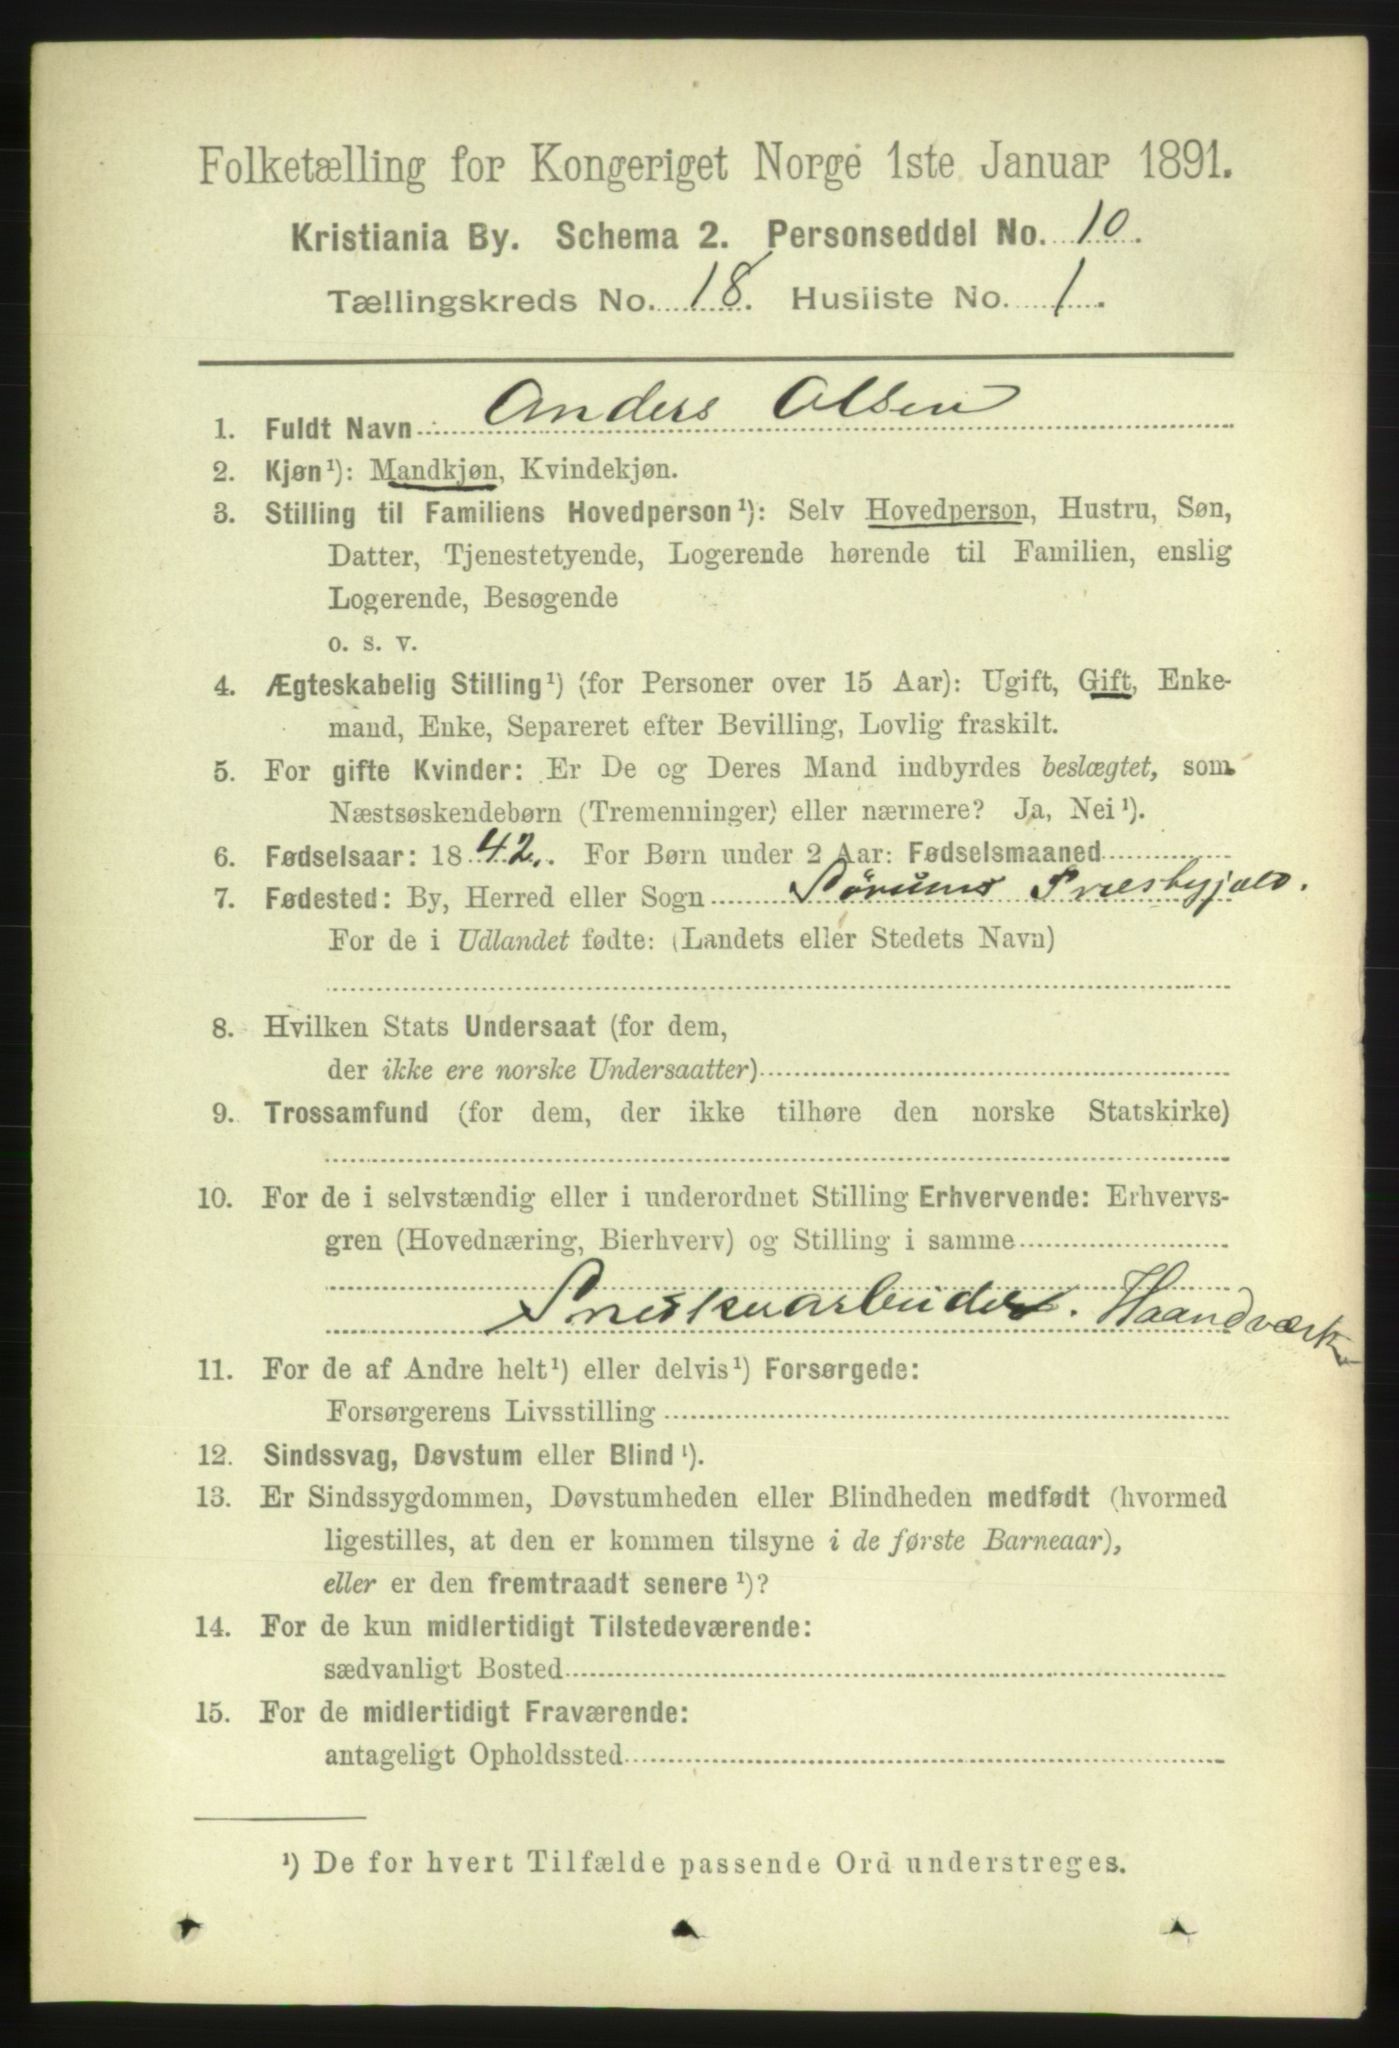 Folketælling for Kongeriget Norge 1ste Januar 1891.
Kristiania By. Schema 2. Personseddel No. 10.
Tællingskreds No. 18. Husliste No. 1.
1. Fuldt Navn Anders Olsen
2. Kjøn¹): Mandkjøn, Kvindekjøn.
3. Stilling til Familiens Hovedperson¹): Selv Hovedperson, Hustru, Søn,
Datter, Tjenestetyende, Logerende hørende til Familien, enslig
Logerende, Besøgende
o. s. v.
4. Ægteskabelig Stilling¹) (for Personer over 15 Aar): Ugift, Gift, Enke-
mand, Enke, Separeret efter Bevilling, Lovlig fraskilt.
5. For gifte Kvinder: Er De og Deres Mand indbyrdes beslægtet, som
Næstsøskendebørn (Tremenninger) eller nærmere? Ja, Nei¹).
6. Fødselsaar: 1842. For Børn under 2 Aar: Fødselsmaaned
7. Fødested: By, Herred eller Sogn Sørums Præstegjæld.
For de i Udlandet fødte: (Landets eller Stedets Navn)
8. Hvilken Stats Undersaat (for dem,
der ikke ere norske Undersaatter)
9. Trossamfund (for dem, der ikke tilhøre den norske Statskirke)
10. For de i selvstændig eller i underordnet Stilling Erhvervende: Erhvervs-
gren (Hovednæring, Bierhverv) og Stilling i samme
Snedkerarbeider. Haandværk
11. For de af Andre helt¹) eller delvis¹) Forsørgede:
Forsørgerens Livsstilling
12. Sindssvag, Døvstum eller Blind¹).
13. Er Sindssygdommen, Døvstumheden eller Blindheden medfødt (hvormed
ligestilles, at den er kommen tilsyne i de første Barneaar),
eller er den fremtraadt senere¹)?
14. For de kun midlertidigt Tilstedeværende:
sædvanligt Bosted
15. For de midlertidigt Fraværende:
antageligt Opholdssted
¹) De for hvert Tilfælde passende Ord understreges.